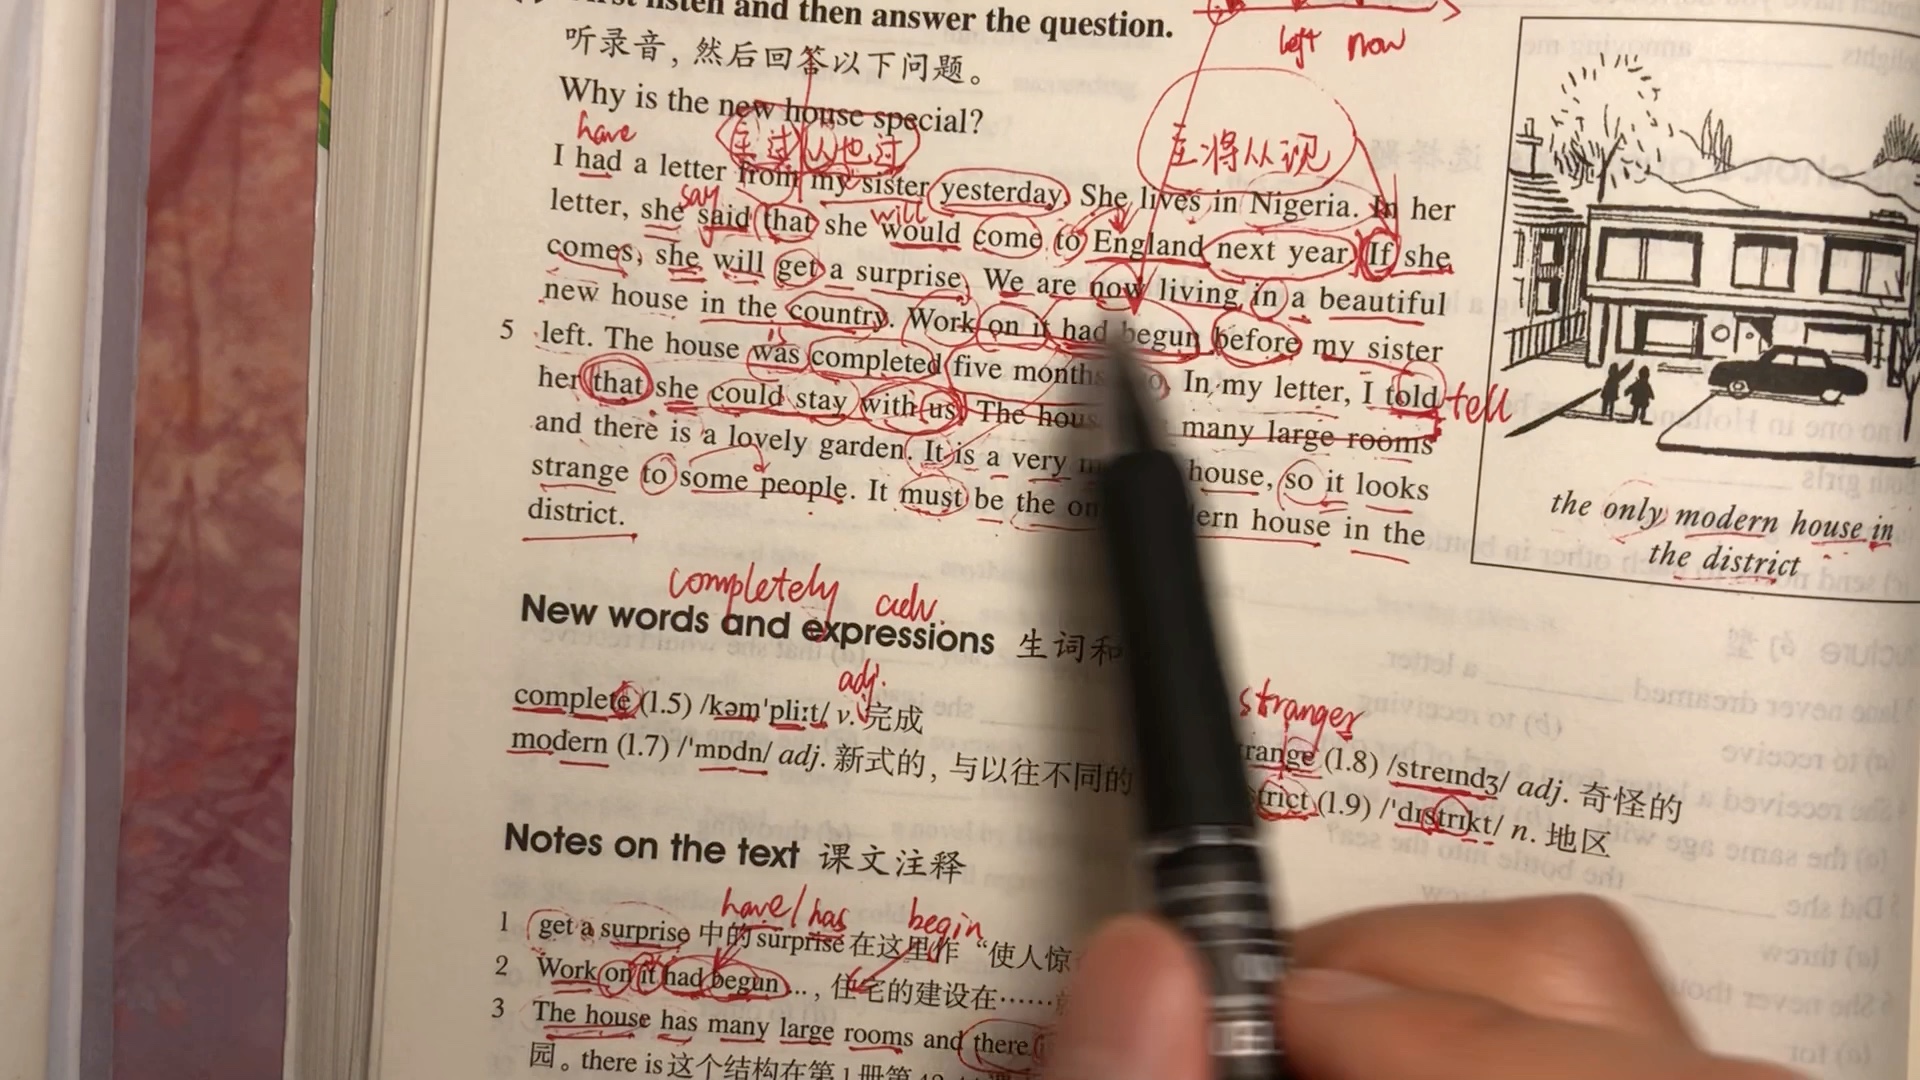 listen and then answer the question.
听录音，然后回答以下问题。
left now
Why is the new house special?
have
主过 从也过
主将从现
I had a letter from my sister yesterday. She lives in Nigeria. In her
say will
letter, she said that she would come to England next year. If she
comes, she will get a surprise. We are now living in a beautiful
new house in the country. Work on it had begun before my sister
is
5 left. The house was completed five months In my letter, I told
tell
her that she could stay with us. The many large rooms
and there is a lovely garden. It is a very house, so it looks
strange to some people. It must be the house in the
district.
the only modern house in
the district
completely adv.
New words and expressions 生词和
adj.
complete (1.5) /kəmˈpliːt/ v. 完成
modern (1.7) /ˈmɒdn/ adj. 新式的，与以往不同的
stranger
(1.8) /streɪndʒ/ adj. 奇怪的
(1.9) /ˈdɪstrɪkt/ n. 地区
Notes on the text 课文注释
have/has begin
1 get a surprise 中的 surprise 在这里作 “使人惊
2 Work on it had begun…, 住宅的建设在……
3 The house has many large rooms and there
园。there is 这个结构在第1册第